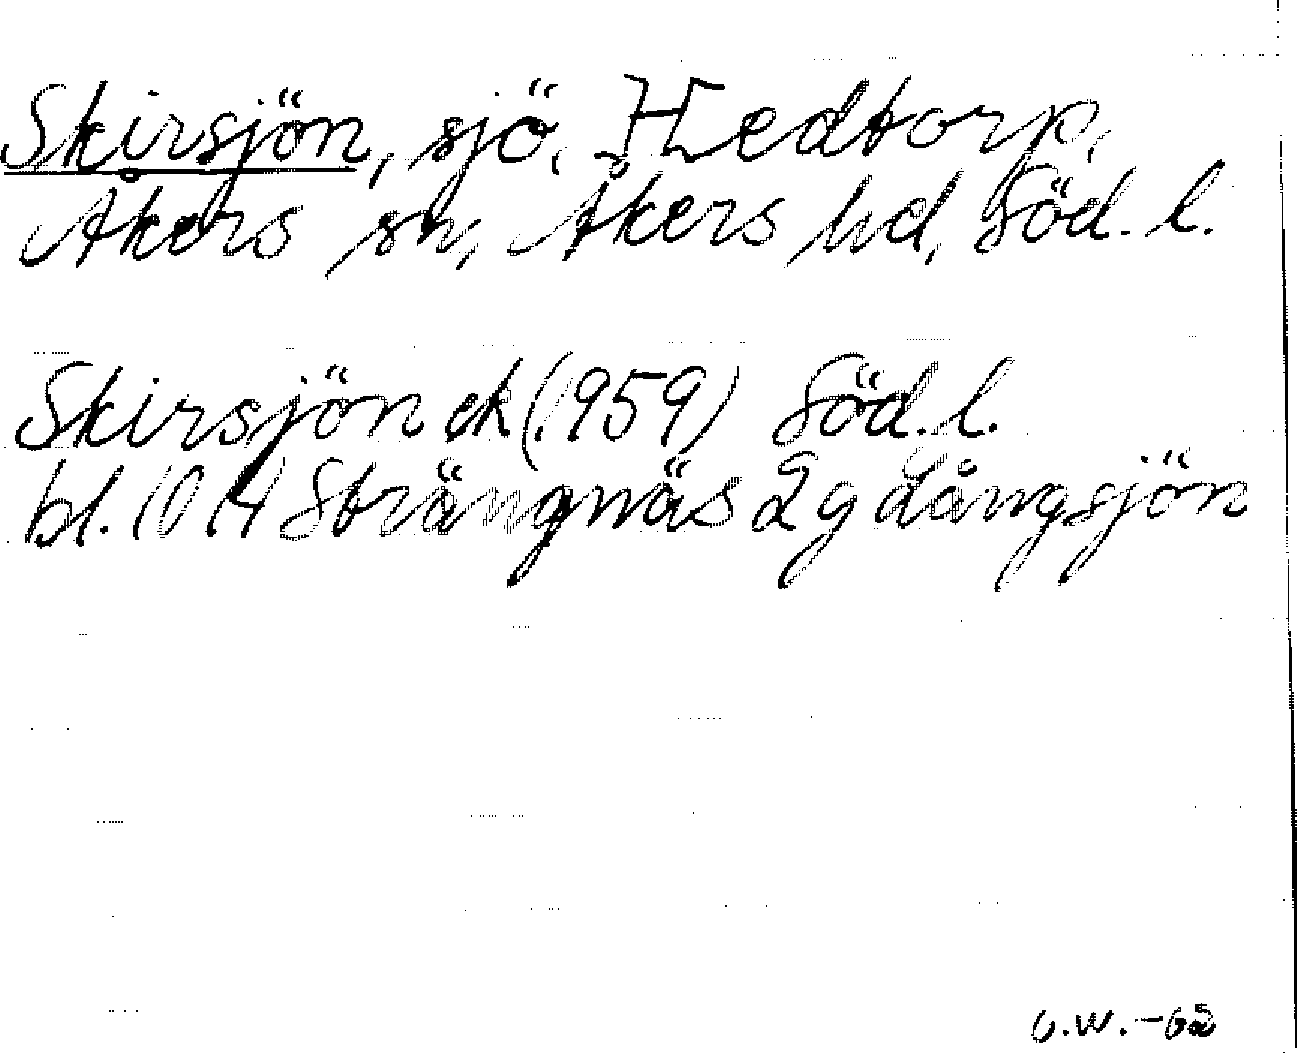 Skirsjön, sjö, Hedtorp,
Åkers sn, Åkers hd, Söd. l.
Skirsjön ek (1959) Söd. l.
bl. 10 H Strängnäs 2 g Långsjön